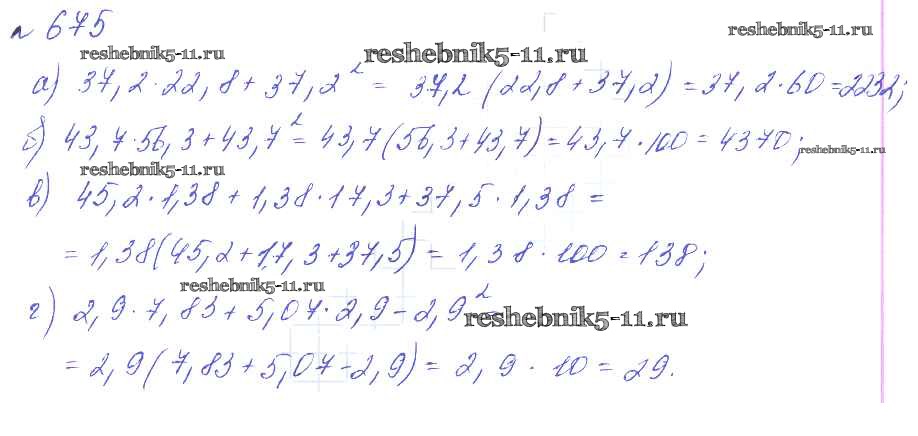 № 675
reshebnik5-11.ru reshebnik5-11.ru reshebnik5-11.ru
а) 37,2·22,8+37,2² = 37,2(22,8+37,2)=37,2·60=2232;
б) 43,7·56,3+43,7²=43,7(56,3+43,7)=43,7·100=4370; reshebnik5-11.ru
reshebnik5-11.ru
в) 45,2·1,38+1,38·17,3+37,5·1,38 =
= 1,38(45,2+17,3+37,5)= 1,38·100=138;
reshebnik5-11.ru
г) 2,9·7,83+5,07·2,9-2,9² =
reshebnik5-11.ru
= 2,9(7,83+5,07-2,9)= 2,9·10=29.